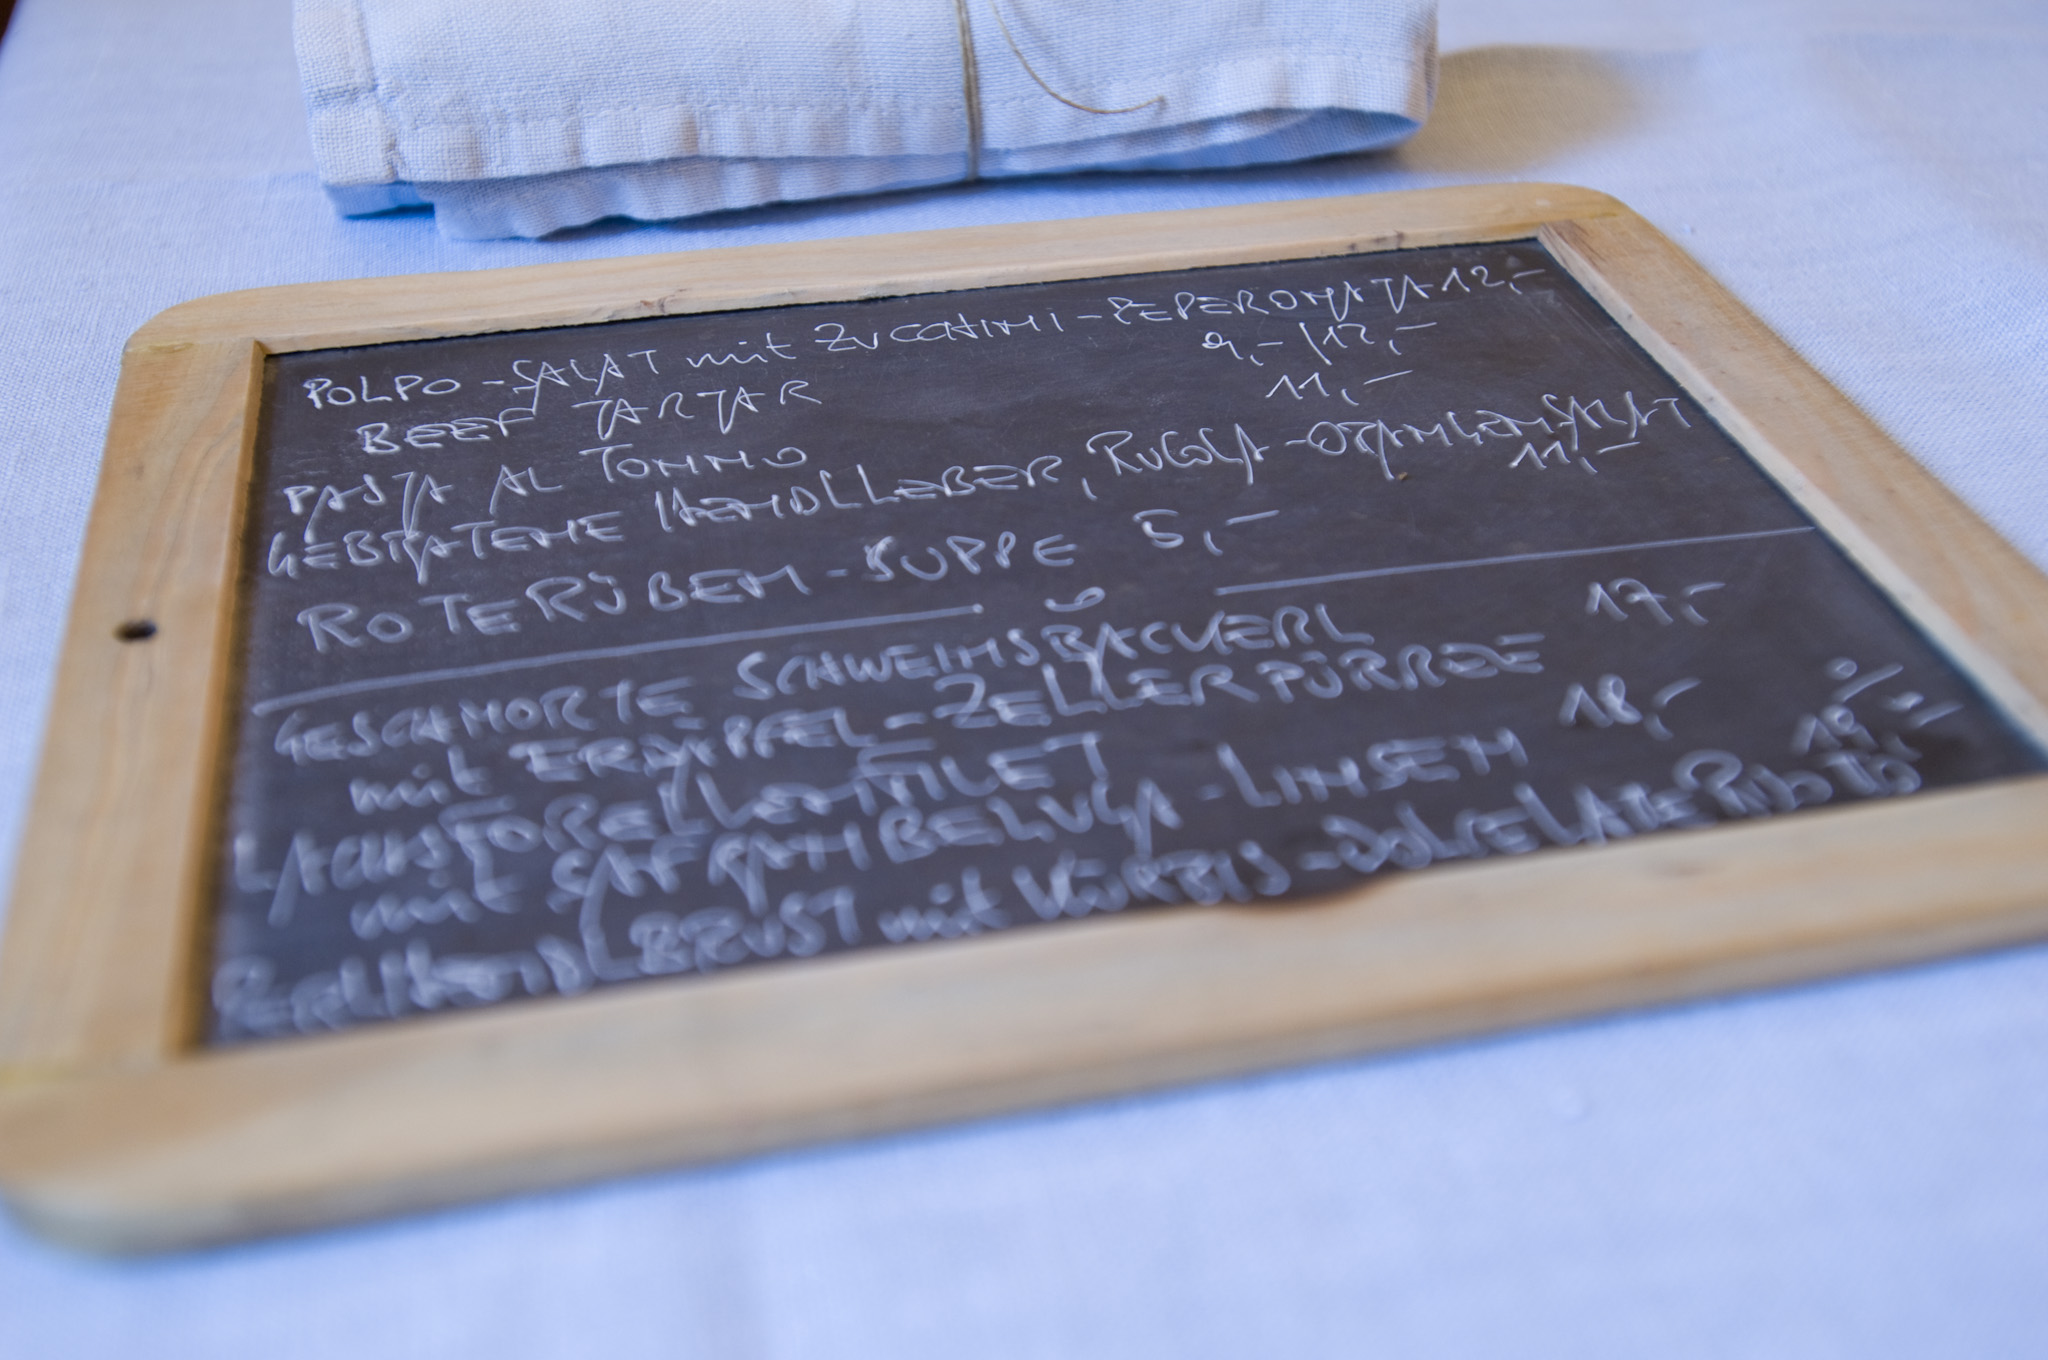 POLPO-SALAT mit ZUCCHINI-PEPERONATA 12,-
BEEF TARTAR 9,-/12,-
PASTA AL TONNO 11,-
GEBRATENE HENDLLEBER, RUGOLA-ORANGENSALAT
11,-
ROTERÜBEN-SUPPE 5,-
GESCHMORTE SCHWEINSBACKERL
mit ERDÄPFEL-ZELLERPÜRREE 17,-
LACHSFORELLENFILET
mit SAFRAN BELUGA-LINSEN 18,-
19,-
BRUST mit KÜRBIS-